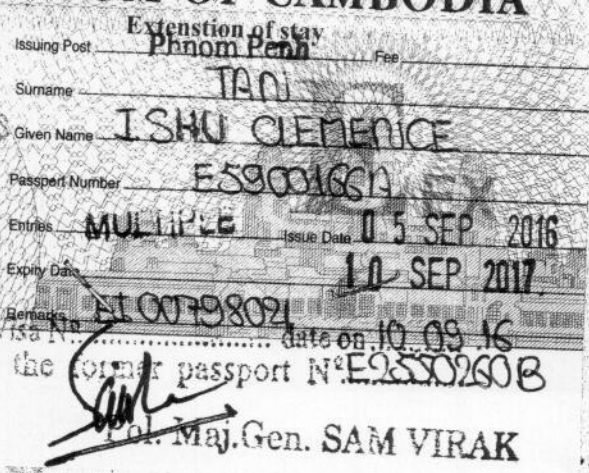 OF CAMBODIA
Extenstion of stay
Issuing Post Phnom Penh Fee
Surname TAN
Given Name ISHU CLEMENCE
Passport Number
Entries MULTIPLE Issue Date 05 SEP 2016
Expiry Date 10 SEP 2017
Remarks
date on 10.09.16
the former passport Nº
Pol. Maj.Gen. SAM VIRAK